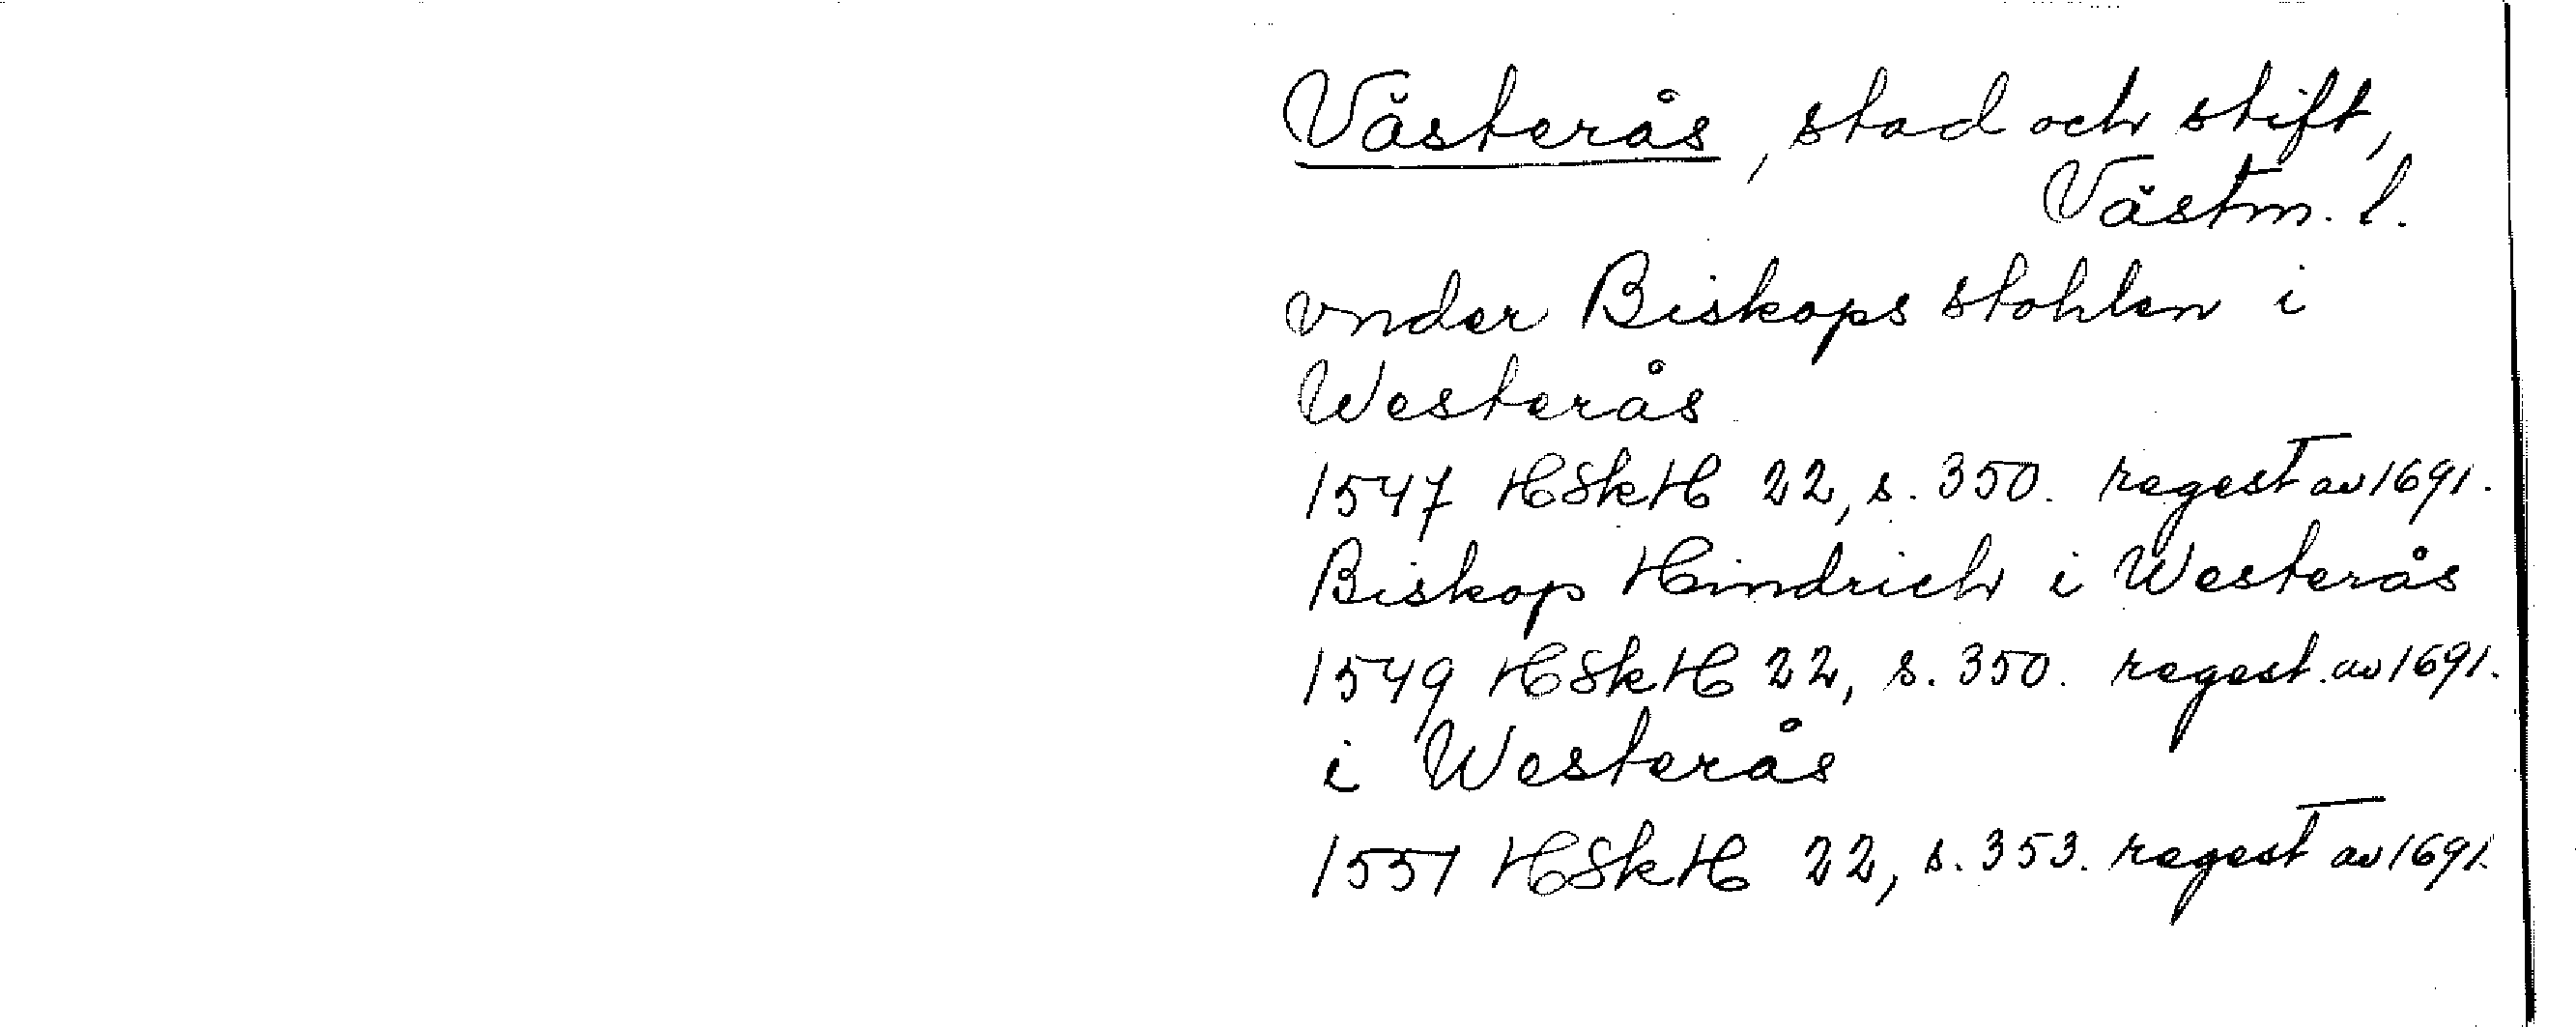 Västerås, stad och stift,
Västm. l.
vnder Biskops stohlen i
Westerås
1547 HSkH 22, s. 350. regest av 1691.
Biskop Hindrich i Westerås
1549 HSkH 22, s. 350. regest. av 1691.
i Westerås
1551 HSkH 22, s. 353. regest av 1691.